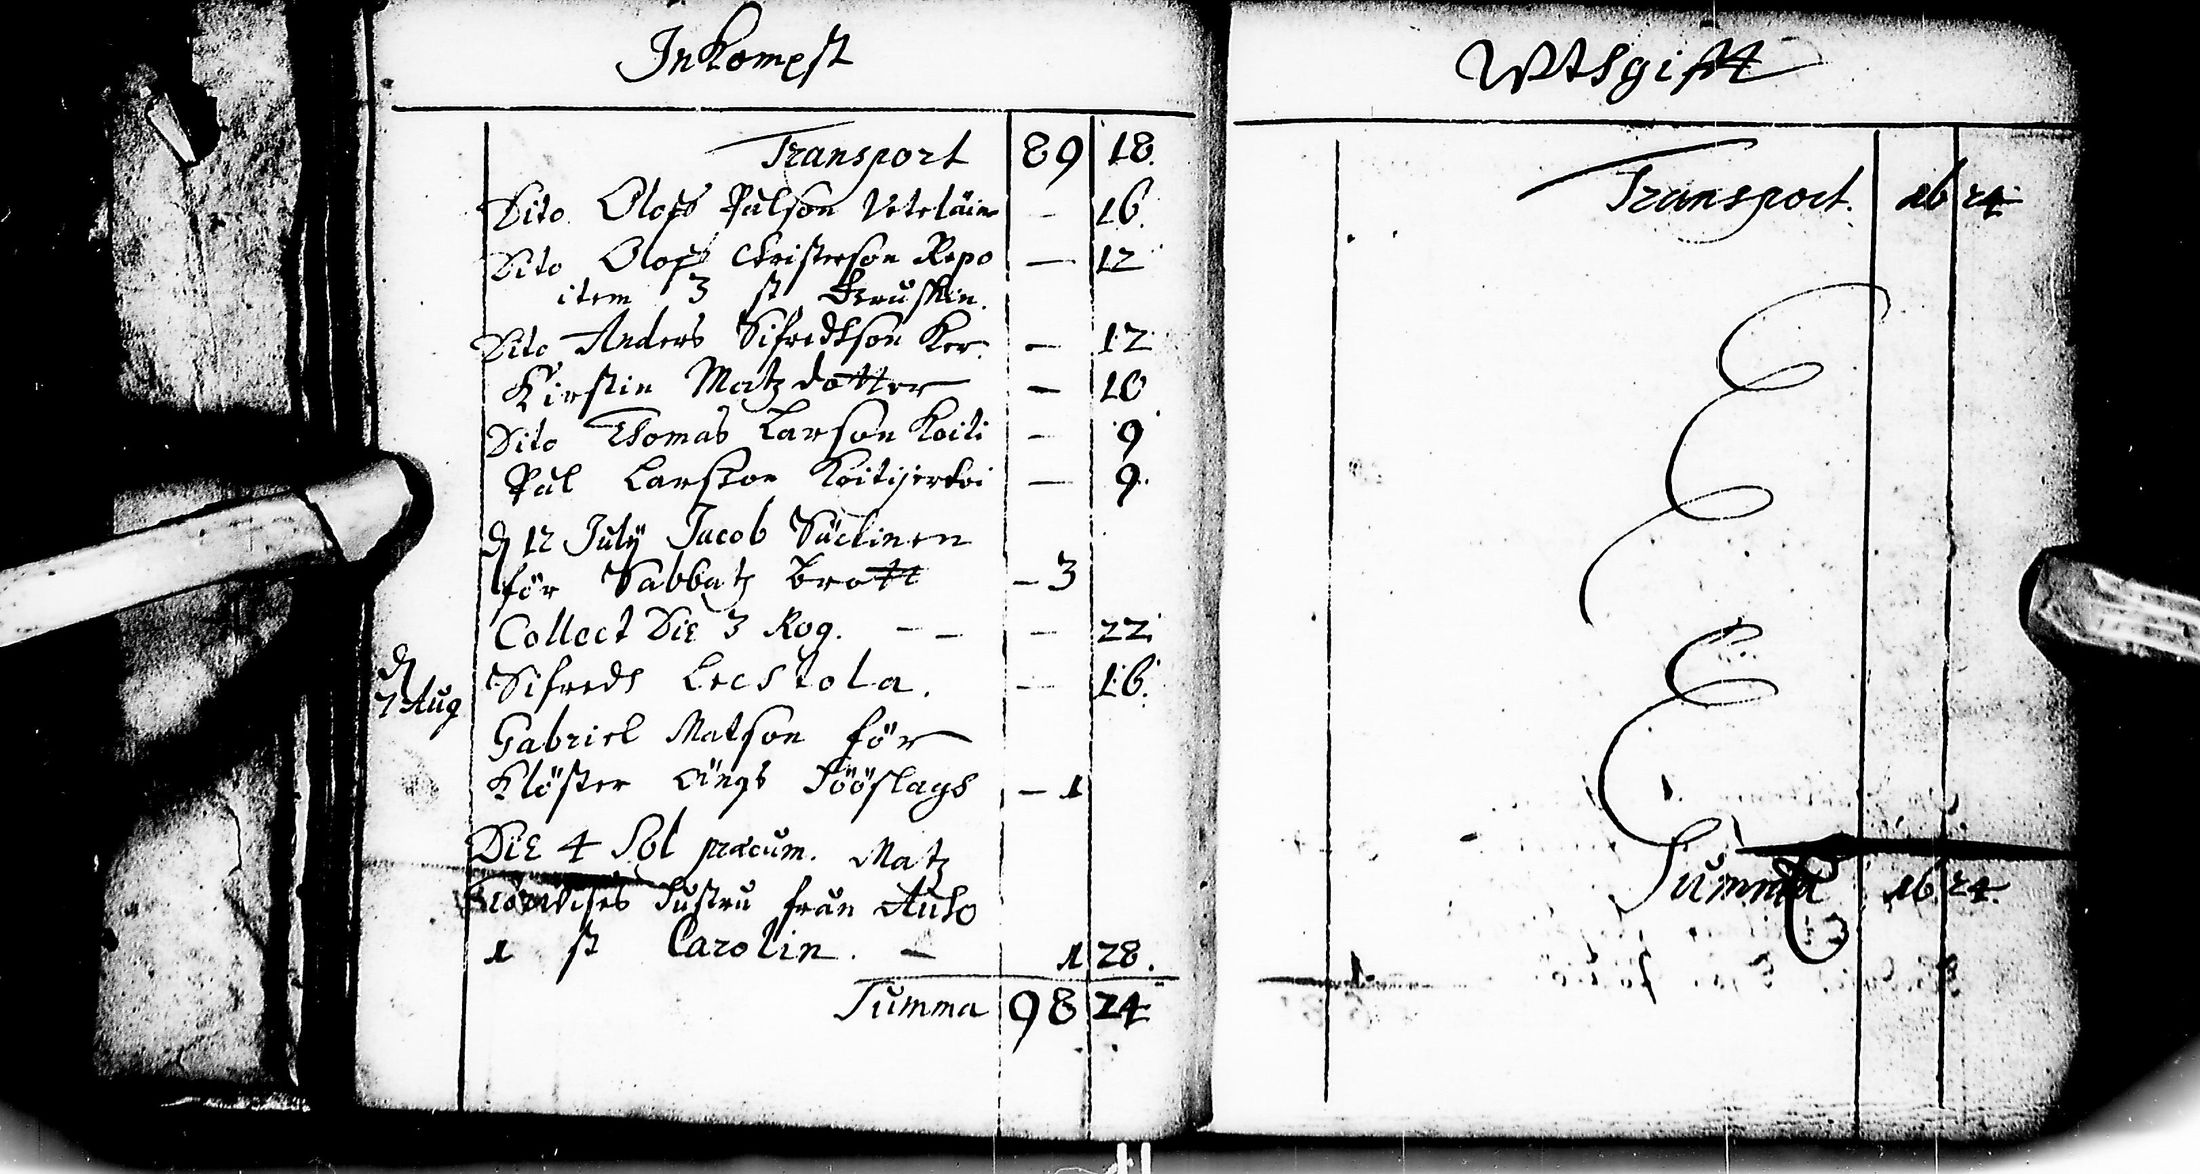 Inkompst
Transport 89 18.
Dito Olofs Pålson Veteläin — 16.
Dito Olofs Christerson Repo — 12
item 3 st
Dito Anders Sifredsson Ker. — 12
Kirstin Matz dotter — 10
Dito Thomas Larson Koiti — 9
Pål Larsson — 9.
d 12 July Jacob Säckinen
för Sabbatz brott — 3
Collect Die 3 Rog. — — — 22
d 7 Aug Sifreds Lecstola. — 16.
Gabriel Matson för
Klöster ängs Sööslags — 1
Die 4 Sol præcum. Matz
hustru från
1 st Carolin. — 1 28.
Summa 98 24
Wtsgifft
Transport. 16 24
Summa 16 24.